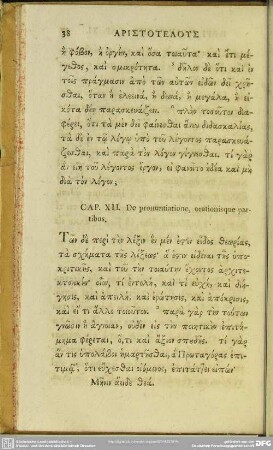 38 ΑΡΙΣΤΟΤΕΛΟΥΣ
ἢ φόβον, ἢ ὀργὴν, καὶ ὅσα τοιαῦτα· καὶ ἔτι μέ-
γεθος, καὶ σμικρότητα. δῆλον δὲ ὅτι καὶ ἐν
τοῖς πράγμασιν ἀπὸ τῶν αὐτῶν εἰδῶν δεῖ χρῆ-
σθαι, ὅταν ἢ ἐλεεινὰ, ἢ δεινὰ, ἢ μεγάλα, ἢ εἰ-
κότα δέῃ παρασκευάζειν. πλὴν τοσοῦτον δια-
φέρει, ὅτι τὰ μὲν δεῖ φαίνεσθαι ἄνευ διδασκαλίας,
τὰ δὲ ἐν τῷ λόγῳ ὑπὸ τοῦ λέγοντος παρασκευά-
ζεσθαι, καὶ παρὰ τὸν λόγον γίγνεσθαι. τί γὰρ
ἂν εἴη τοῦ λέγοντος ἔργον, εἰ φανοῖτο ἡδέα καὶ μὴ
διὰ τὸν λόγον;
CAP. XII. De pronuntiatione, orationisque par-
tibus.
Τῶν δὲ περὶ τὴν λέξιν ἓν μέν ἐστιν εἶδος θεωρίας,
τὰ σχήματα τῆς λέξεως· ἅ ἐστιν εἰδέναι τῆς ὑπο-
κριτικῆς, καὶ τοῦ τὴν τοιαύτην ἔχοντος ἀρχιτε-
κτονικήν· οἷον, τί ἐντολὴ, καὶ τί εὐχὴ, καὶ διή-
γησις, καὶ ἀπειλὴ, καὶ ἐρώτησις, καὶ ἀπόκρισις,
καὶ εἴ τι ἄλλο τοιοῦτον. παρὰ γὰρ τὴν τούτων
γνῶσιν ἢ ἄγνοιαν, οὐδὲν εἰς τὴν ποιητικὴν ἐπιτί-
μημα φέρεται, ὅ,τι καὶ ἄξιον σπουδῆς. τί γὰρ
ἄν τις ὑπολάβοι ἡμαρτῆσθαι, ἃ Πρωταγόρας ἐπι-
τιμᾷ, ὅτι εὔχεσθαι οἰόμενος, ἐπιτάττει εἰπὼν·
Μῆνιν ἄειδε θεά.